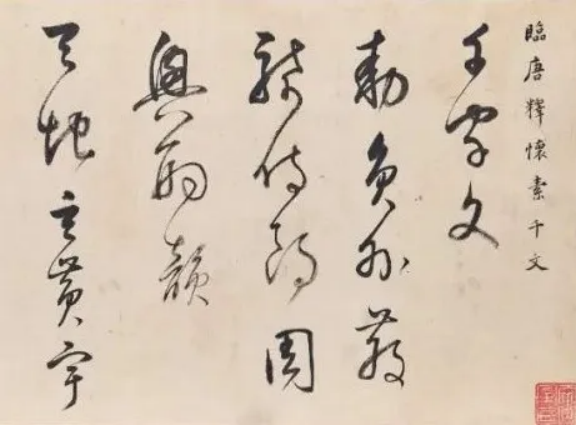 臨唐釋懷素千文
千字文
勅員外散
騎侍郎周
興嗣韻
天地玄黃宇